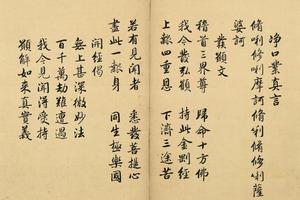 净口業真言
脩唎脩唎摩訶脩唎脩脩唎薩
婆訶
發願文
稽首三界尊 歸命十方佛
我今發弘願 持此金剛經
上報四重恩 下濟三途苦
若有見聞者 悉發菩提心
盡此一報身 同生極樂國
開經偈
無上甚深微妙法
百千萬劫難遭遇
我今見聞得受持
願解如來真實義